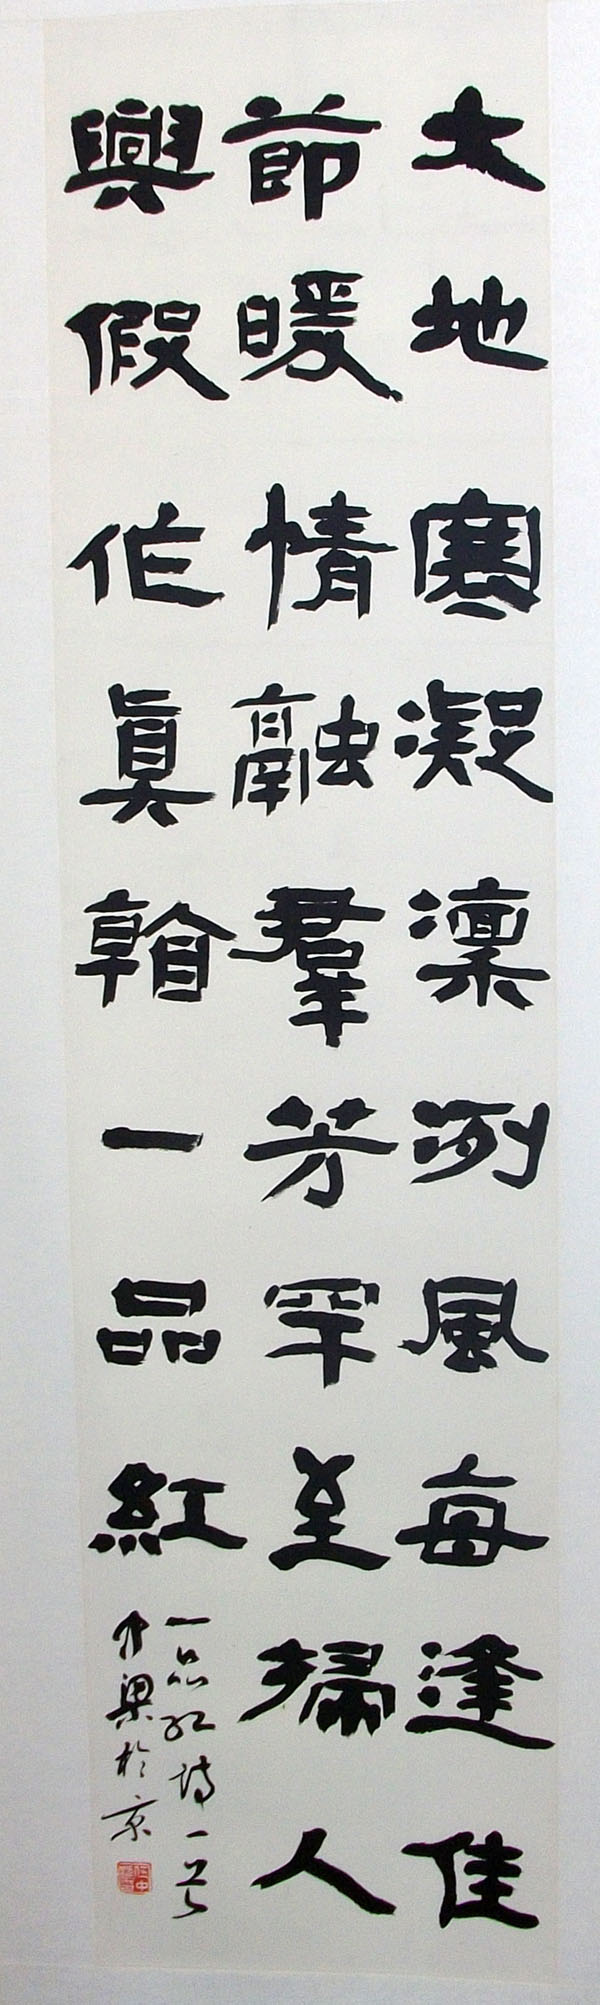 大地寒凝凜冽風每逢佳
節暖情融羣芳罕至掃人
興假作真翰一品紅
一品紅詩一首
梁於京